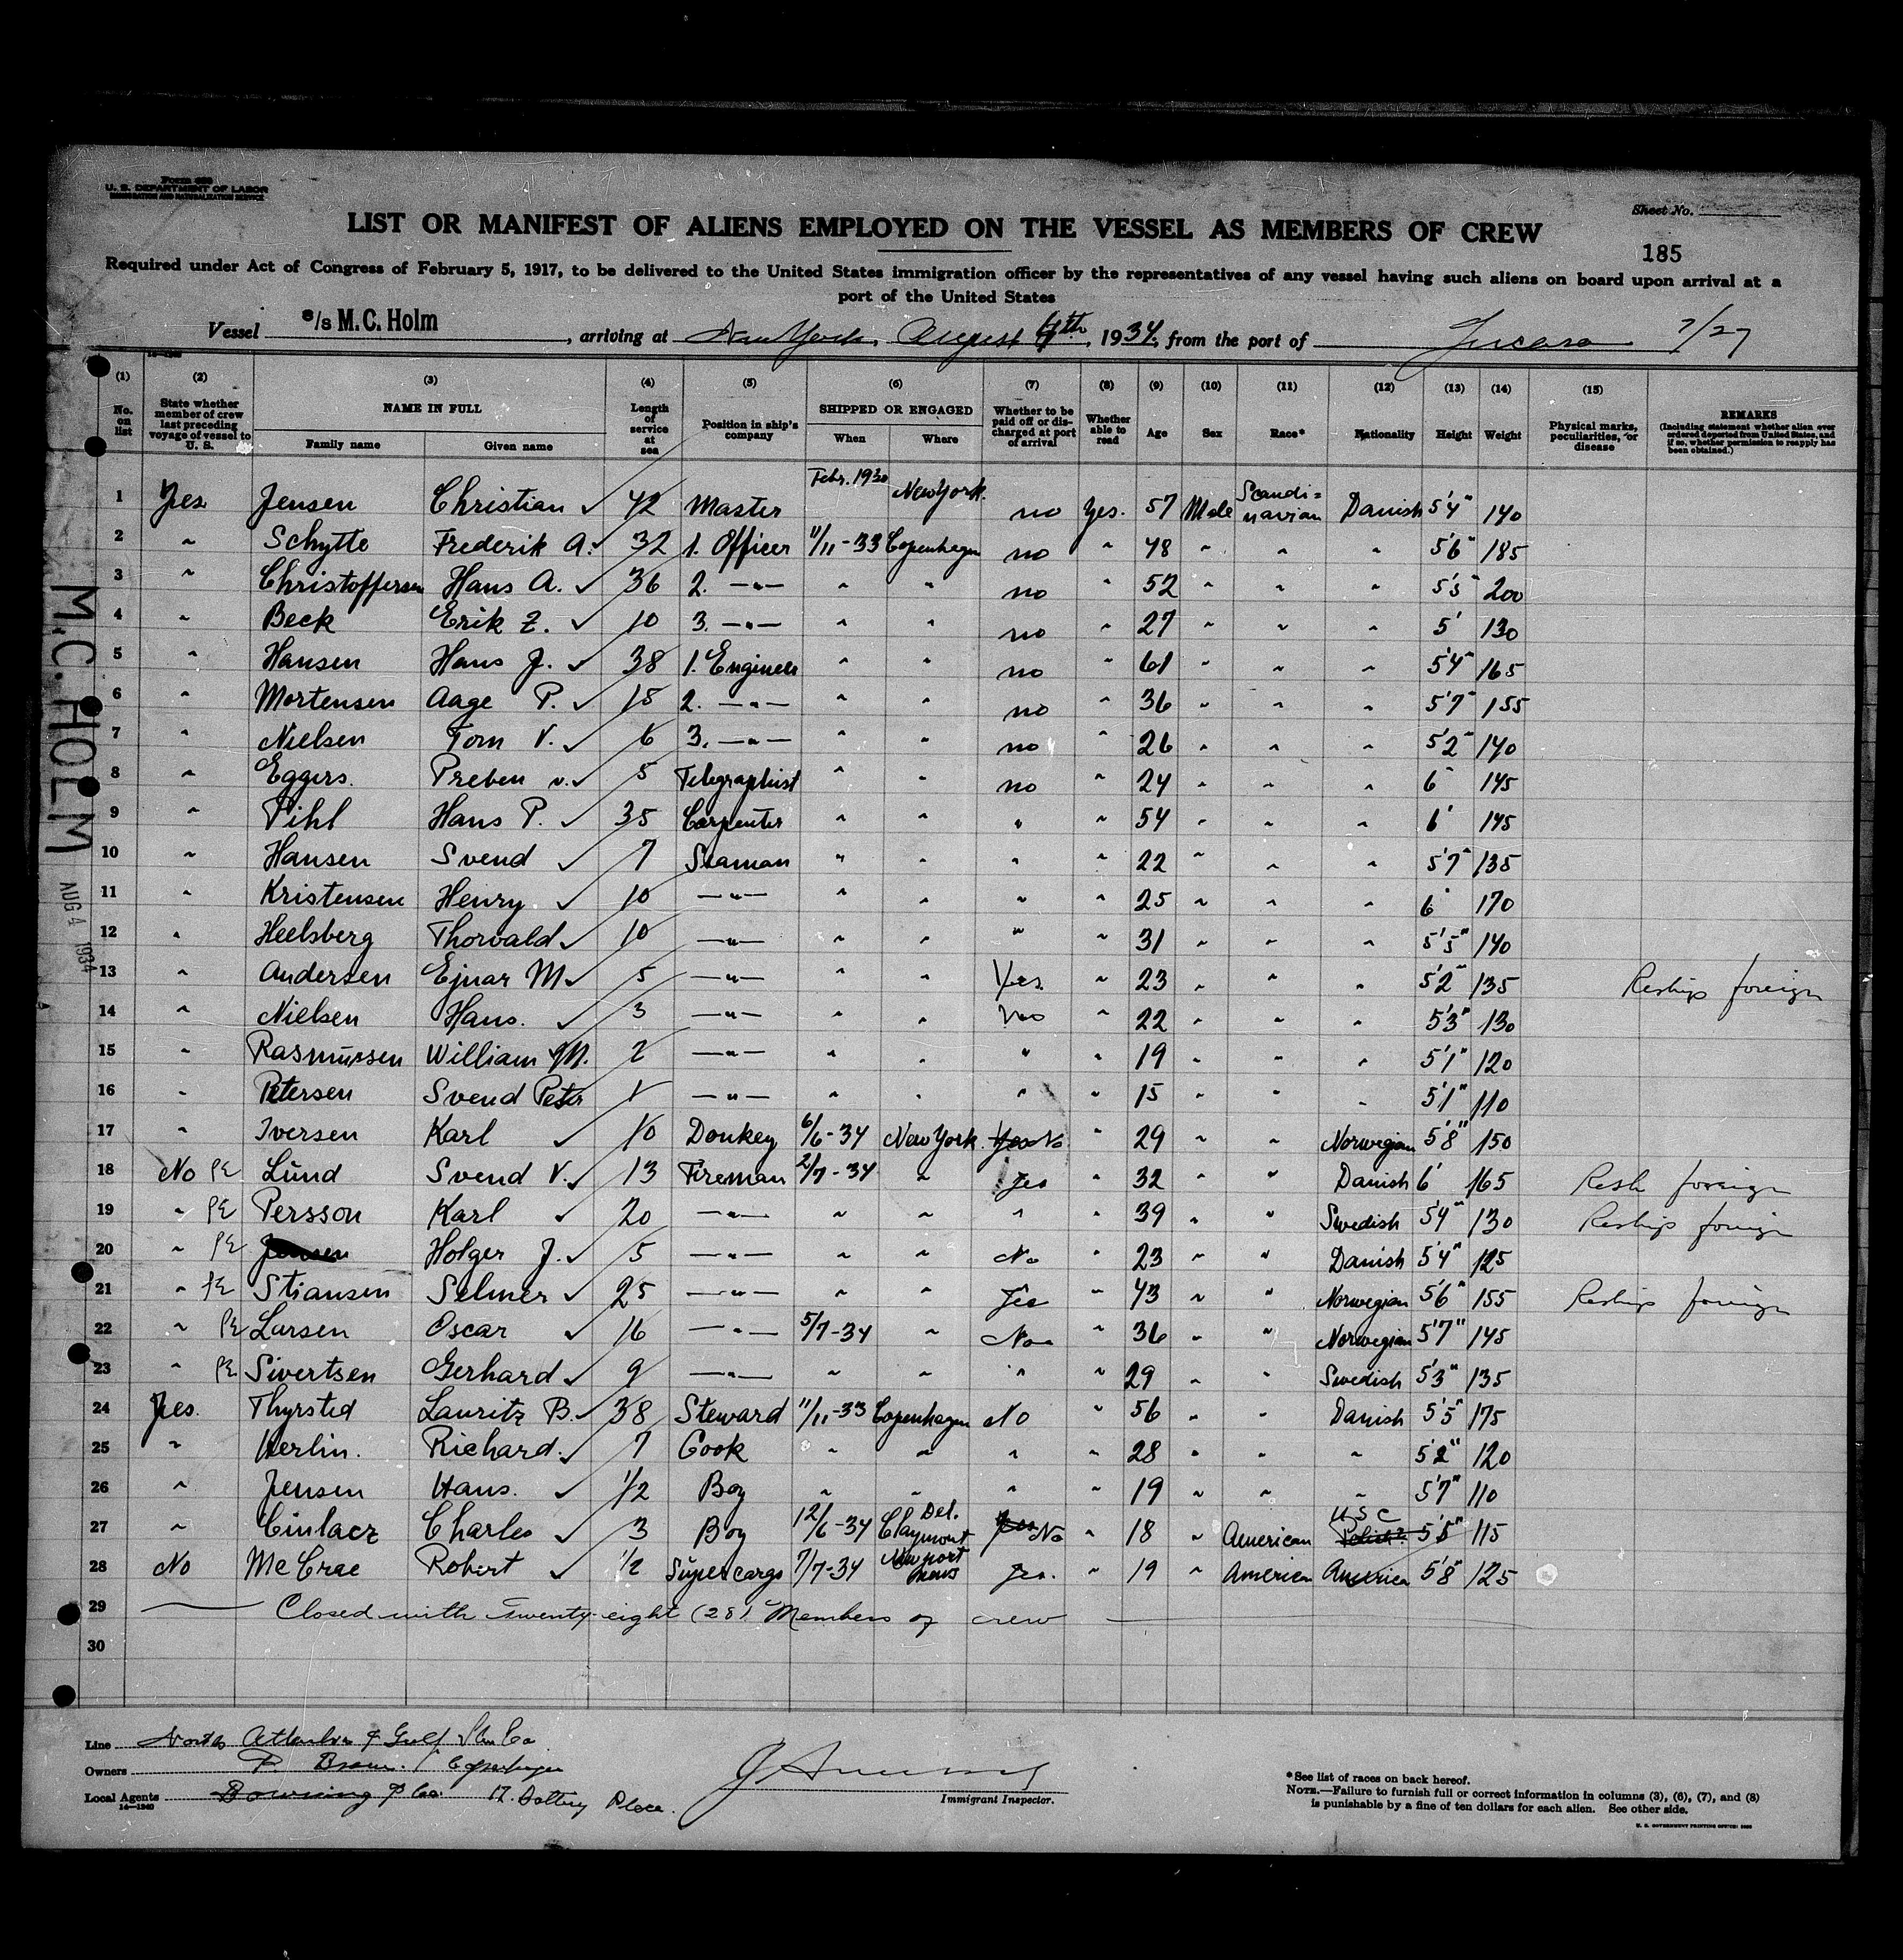 Form 689
U. S. DEPARTMENT OF LABOR
IMMIGRATION AND NATURALIZATION SERVICE
Sheet No.
LIST OR MANIFEST OF ALIENS EMPLOYED ON THE VESSEL AS MEMBERS OF CREW
185
Required under Act of Congress of February 5, 1917, to be delivered to the United States immigration officer by the representatives of any vessel having such aliens on board upon arrival at a
port of the United States
Vessel s/s M.C. Holm, arriving at New York, August 4th, 1934, from the port of 7/27
(1) (2) (3) (4) (5) (6) (7) (8) (9) (10) (11) (12) (13) (14) (15)
No. on list
State whether member of crew last preceding voyage of vessel to U. S.
NAME IN FULL
Family name Given name
Length of service at sea
Position in ship's company
SHIPPED OR ENGAGED
When Where
Whether to be paid off or discharged at port of arrival
Whether able to read
Age Sex Race* Nationality Height Weight
Physical marks, peculiarities, or disease
REMARKS
(Including statement whether alien ever ordered deported from United States, and if so, whether permission to reapply has been obtained.)
1 Yes Jensen Christian 42 Master Febr. 1930 New York no Yes. 57 Male Scandi=navian Danish 5'4" 140
2 " Schytte Frederik A. 32 1. Officer 11/11-33 Copenhagen no " 48 " " " 5'6" 185
3 " Christoffersen Hans A. 36 2. —"— " " no " 52 " " " 5'5" 200
4 " Beck Erik Z. 10 3. —"— " " no " 27 " " " 5' 130
5 " Hansen Hans J. 38 1. Engineer " " no " 61 " " " 5'4" 165
6 " Mortensen Aage P. 18 2. —"— " " no " 36 " " " 5'7" 155
7 " Nielsen Tom V. 6 3. —"— " " no " 26 " " " 5'2" 140
8 " Eggers. Preben v. 5 Telegraphist " " no " 24 " " " 6' 145
9 " Pihl Hans P. 35 Carpenter " " " " 54 " " " 6' 145
10 " Hansen Svend 7 Seaman " " " " 22 " " " 5'7" 135
11 " Kristensen Henry. 10 —"— " " " " 25 " " " 6' 170
12 " Heelsberg Thorvald 10 —"— " " " " 31 " " " 5'5" 140
13 " Andersen Ejnar M 5 —"— " " Yes. " 23 " " " 5'2" 135 Reship foreign
14 " Nielsen Hans. 3 —"— " " No " 22 " " " 5'3" 130
15 " Rasmussen William M. 2 —"— " " " " 19 " " " 5'1" 120
16 " Petersen Svend Peter 1 —"— " " " " 15 " " " 5'1" 110
17 " Iversen Karl 10 Donkey 6/6-34 New York Yes No " 29 " " Norwegian 5'8" 150
18 No PE Lund Svend V. 13 Fireman 2/7-34 " Yes " 32 " " Danish 6' 165 Resh foreign
19 " PE Persson Karl 20 —"— " " " " 39 " " Swedish 5'4" 130 Reship foreign
20 " PE Jensen Holger J. 5 —"— " " No " 23 " " Danish 5'4" 125
21 " PE Stiansen Selmer 25 —"— " " Yes " 43 " " Norwegian 5'6" 155 Reship foreign
22 " PE Larsen Oscar 16 —"— 5/7-34 " No " 36 " " Norwegian 5'7" 145
23 " PE Sivertsen Gerhard 9 —"— " " " " 29 " " Swedish 5'3" 135
24 Yes. Thyrsted Lauritz B. 38 Steward 11/11-33 Copenhagen No " 56 " " Danish 5'5" 175
25 " Richard. 7 Cook " " " " 28 " " " 5'2" 120
26 " Jensen Hans. 1/2 Boy " " " " 19 " " " 5'7" 110
27 " Charles 3 Boy 12/6-34 Claymont Del. Yes No " 18 " American USC 5'5" 115
28 No McCrae Robert 1/2 Supercargo 7/7-34 Newport News Yes. " 19 " American America 5'8" 125
29 Closed with Twenty-eight (28) Members of crew
30
M.C. HOLM
AUG 4 1934
Line North Atlantic & Gulf Co
Owners Copenhagen
Local Agents Bowring & Co. 17. Battery Place.
14-1240
Immigrant Inspector.
*See list of races on back hereof.
NOTE.—Failure to furnish full or correct information in columns (3), (6), (7), and (8)
is punishable by a fine of ten dollars for each alien. See other side.
U. S. GOVERNMENT PRINTING OFFICE: